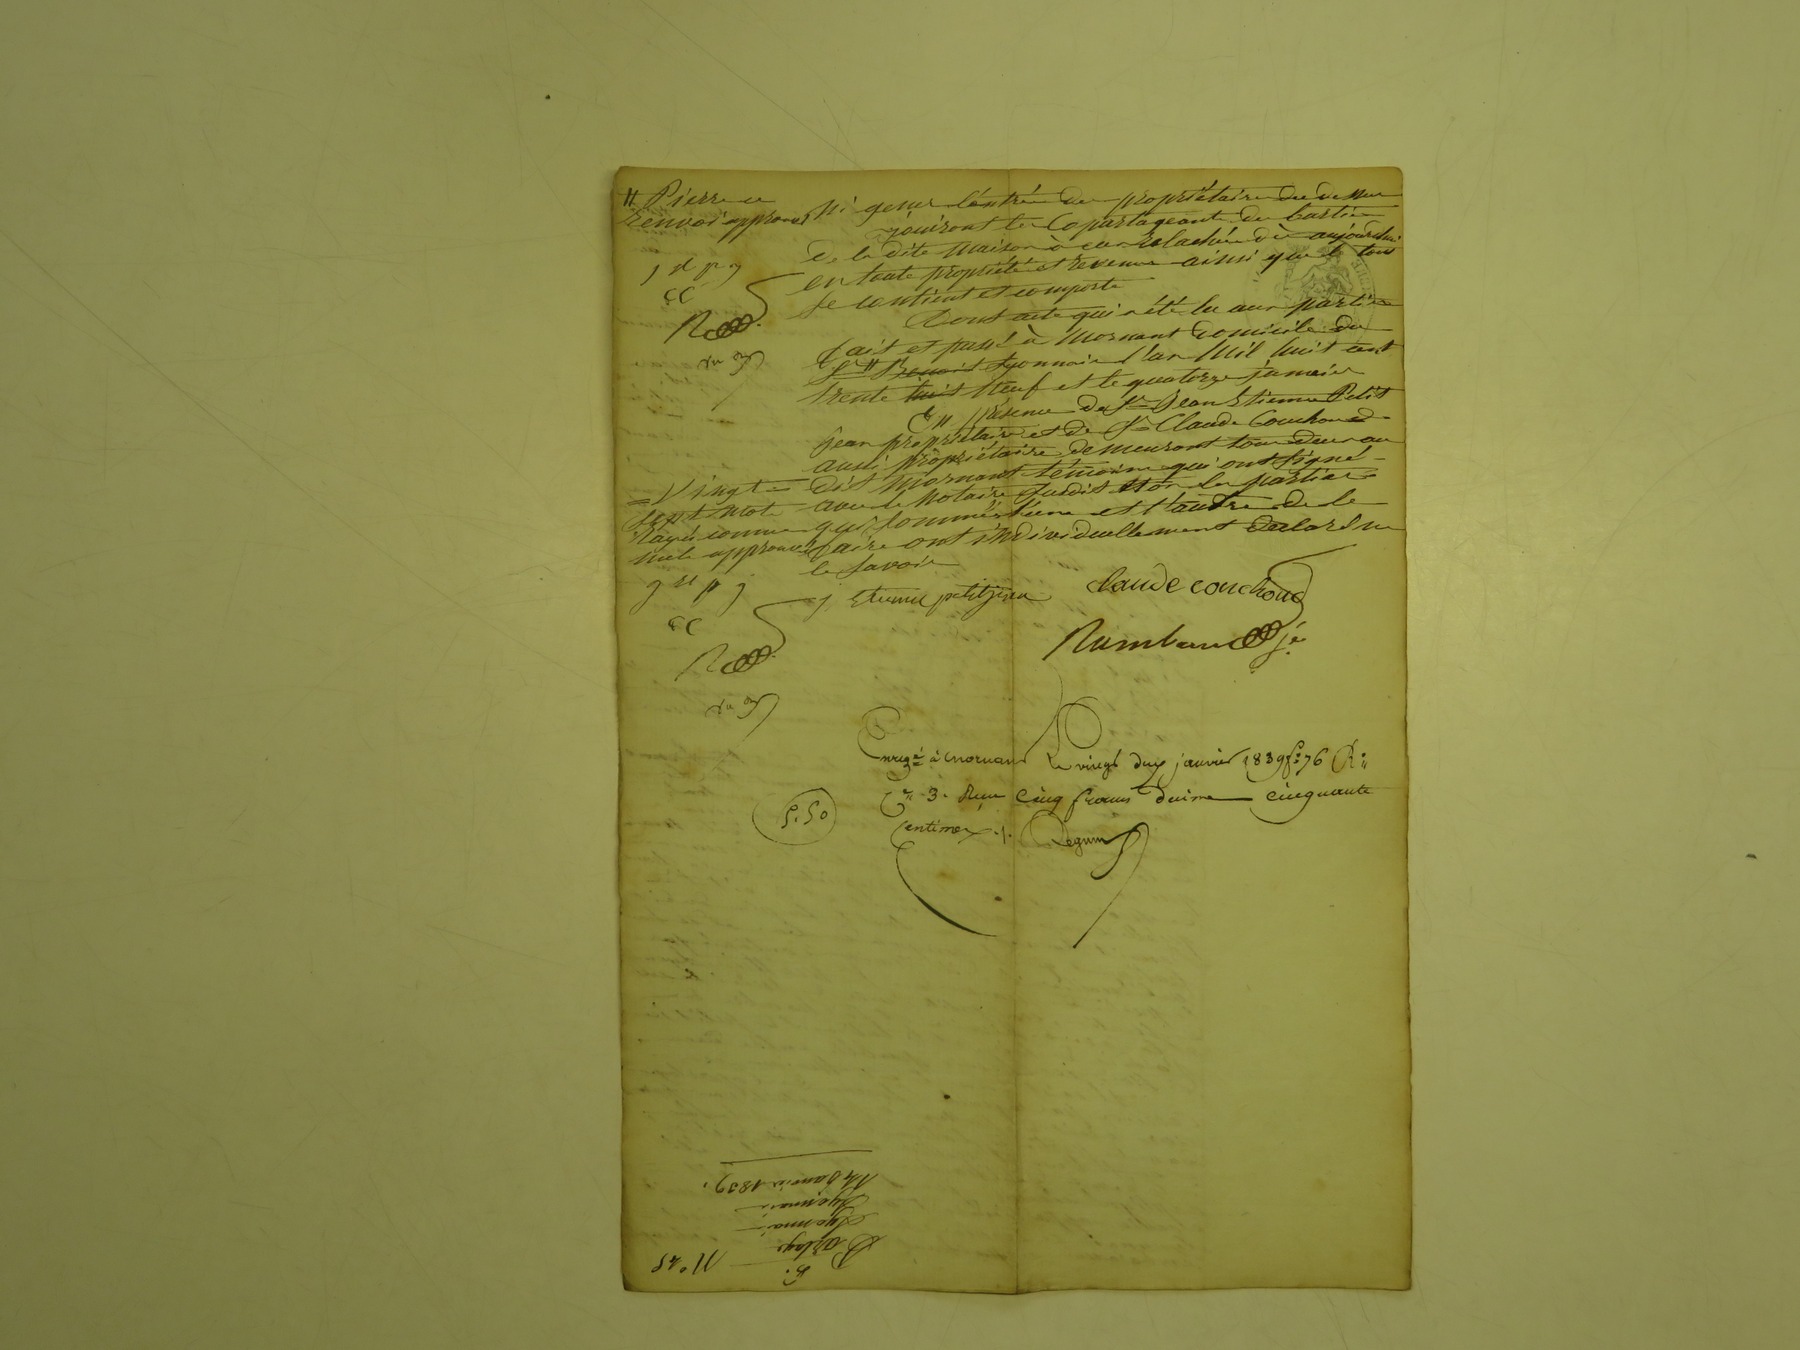 ni gener l'entrée du propriétaire du dessus
jouiront les copartageants des parties
de la dite maison à eux relachées dès aujourd'hui
en toute propriété et revenus ainsi que le tout
se contient et comporte
Dont acte qui a été lu aux parties
fait et passé à Mornant domicile du
Sr # Benoit Lyonnais l'an Mil huit cent
trente huit neuf et le quatorze janvier
En présence de Sr Jean Etienne Petit
jean propriétaire et de Sr Claude Couchoud
aussi propriétaire demeurant tous deux au
dit Mornant témoins qui ont signé
avec le Notaire susdit non les parties
qui sommées l'une et l'autre de le
faire ont individuellement déclaré ne
le savoir
# Pierre
renvoi approuvé
j st p j
CC
= Vingt =
sept mots
rayés comme
nuls approuvés
j st p j
CC
j. Etienne petitjean
claude couchoud
Rambaud je
Enregé à Mornant le vingt deux janvier 1839 fo 76 Ro
Ce 3. Reçu cinq francs decime cinquante
centimes
5.50
No 25
Partage
Lyonnais
Lyonnais
14 Janvier 1839.